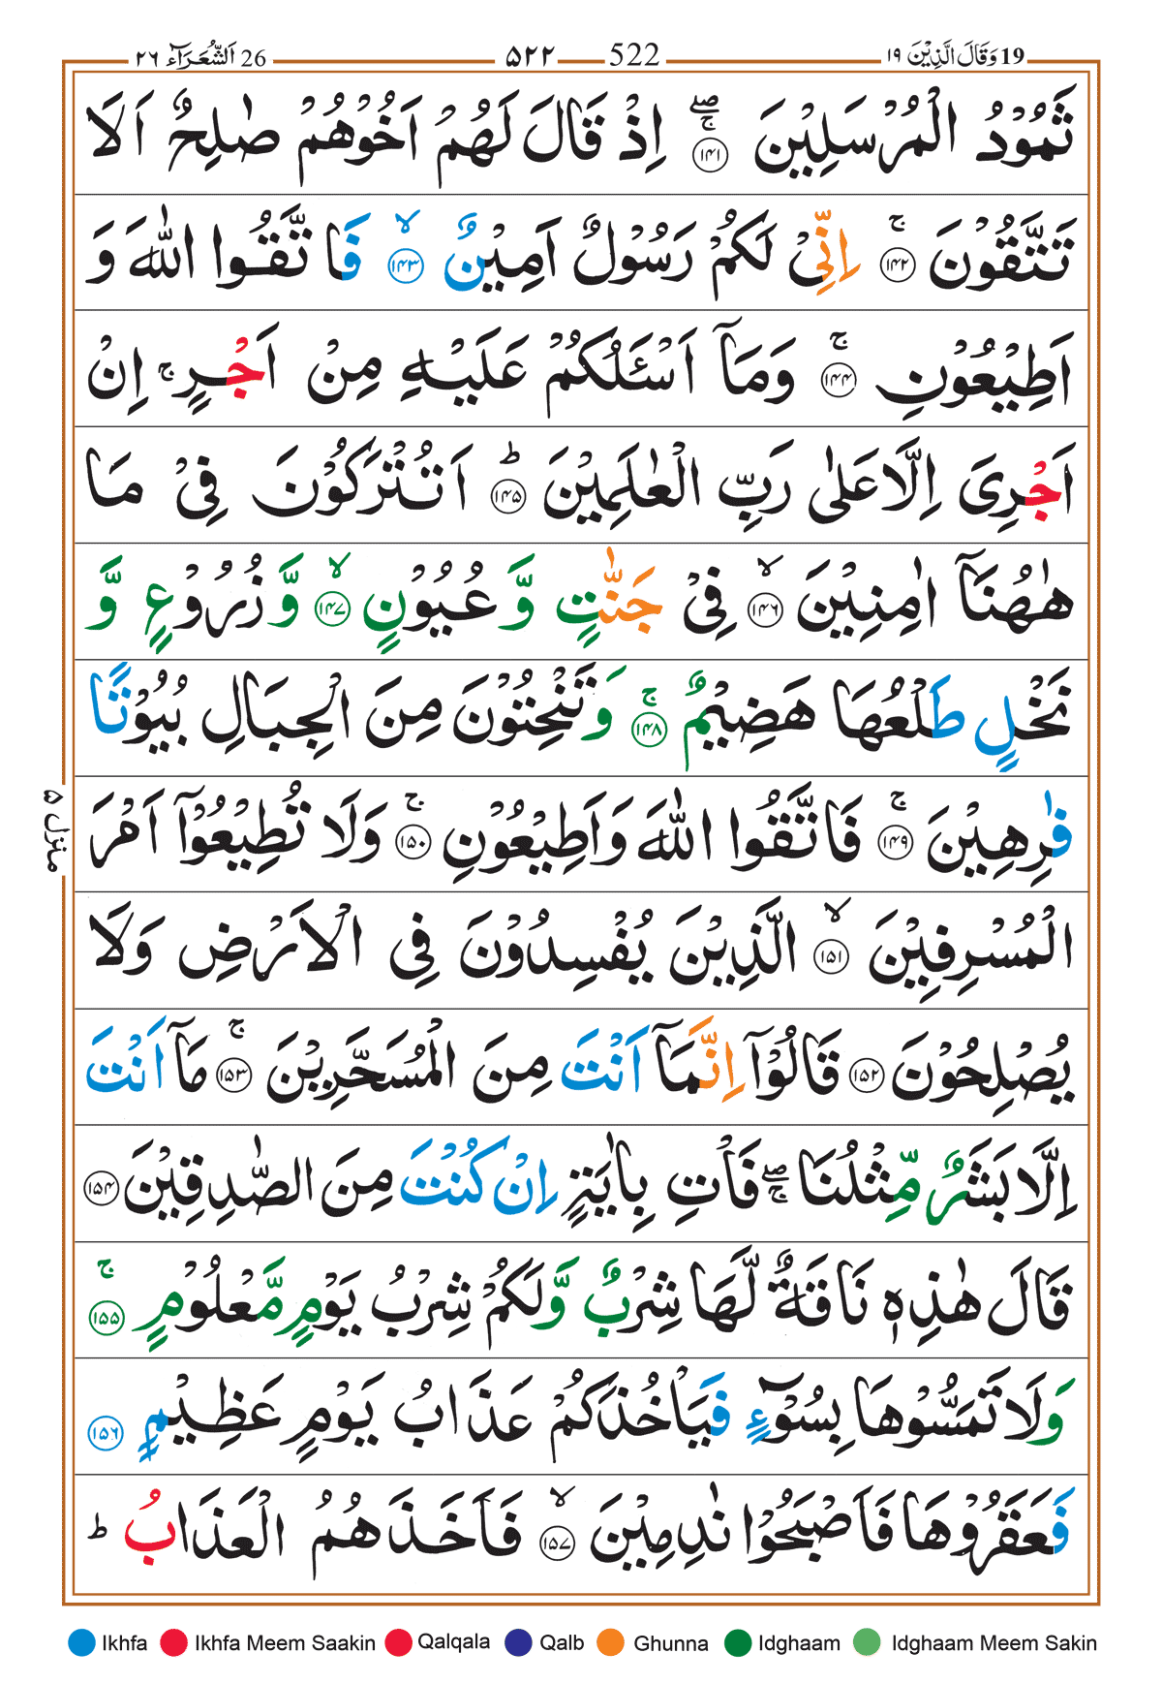 19 وَقَالَ الَّذِيْنَ ١٩ 522 ۵۲۲ 26 اَلشُّعَرَآء ٢٦
ثَمُوْدُ الْمُرْسَلِيْنَ ۚۖ‏ ﴿۱۴۱﴾ اِذْ قَالَ لَهُمْ اَخُوْهُمْ صٰلِحٌ اَلَا
تَتَّقُوْنَ‌ۚ‏ ﴿۱۴۲﴾ اِنِّىْ لَكُمْ رَسُوْلٌ اَمِيْنٌۙ‏ ﴿۱۴۳﴾ فَا تَّقُوا اللّٰهَ وَ
اَطِيْعُوْنِ‌ۚ‏ ﴿۱۴۴﴾ وَمَاۤ اَسْئَلُكُمْ عَلَيْهِ مِنْ اَجْرٍ‌ۚ اِنْ
اَجْرِىَ اِلَّا عَلٰى رَبِّ الْعٰلَمِيْنَؕ‏ ﴿۱۴۵﴾ اَتُتْرَكُوْنَ فِىْ مَا
هٰهُنَاۤ اٰمِنِيْنَۙ‏ ﴿۱۴۶﴾ فِىْ جَنّٰتٍ وَّعُيُوْنٍۙ‏ ﴿۱۴۷﴾ وَّزُرُوْعٍ وَّ
نَخْلٍ طَلْعُهَا هَضِيْمٌ‌ۚ‏ ﴿۱۴۸﴾ وَتَنْحِتُوْنَ مِنَ الْجِبَالِ بُيُوْتًا
فٰرِهِيْنَ‌ۚ‏ ﴿۱۴۹﴾ فَاتَّقُوا اللّٰهَ وَاَطِيْعُوْنِ‌ۚ‏ ﴿۱۵۰﴾ وَلَا تُطِيْعُوْۤا اَمْرَ
الْمُسْرِفِيْنَۙ‏ ﴿۱۵۱﴾ الَّذِيْنَ يُفْسِدُوْنَ فِى الْاَرْضِ وَلَا
يُصْلِحُوْنَ‏ ﴿۱۵۲﴾ قَالُوْۤا اِنَّمَاۤ اَنْتَ مِنَ الْمُسَحَّرِيْنَ‌ۚ‏ ﴿۱۵۳﴾ مَاۤ اَنْتَ
اِلَّا بَشَرٌ مِّثْلُنَا ۖۚ فَاْتِ بِاٰيَةٍ اِنْ كُنْتَ مِنَ الصّٰدِقِيْنَ‏ ﴿۱۵۴﴾
قَالَ هٰذِهٖ نَاقَةٌ لَّهَا شِرْبٌ وَّلَكُمْ شِرْبُ يَوْمٍ مَّعْلُوْمٍ‌ۚ‏ ﴿۱۵۵﴾
وَلَا تَمَسُّوْهَا بِسُوْٓءٍ فَيَاْخُذَكُمْ عَذَابُ يَوْمٍ عَظِيْمٍ‏ ﴿۱۵۶﴾
فَعَقَرُوْهَا فَاَصْبَحُوْا نٰدِمِيْنَۙ‏ ﴿۱۵۷﴾ فَاَخَذَهُمُ الْعَذَابُ‌ؕ
منزل ۵
Ikhfa Ikhfa Meem Saakin Qalqala Qalb Ghunna Idghaam Idghaam Meem Sakin